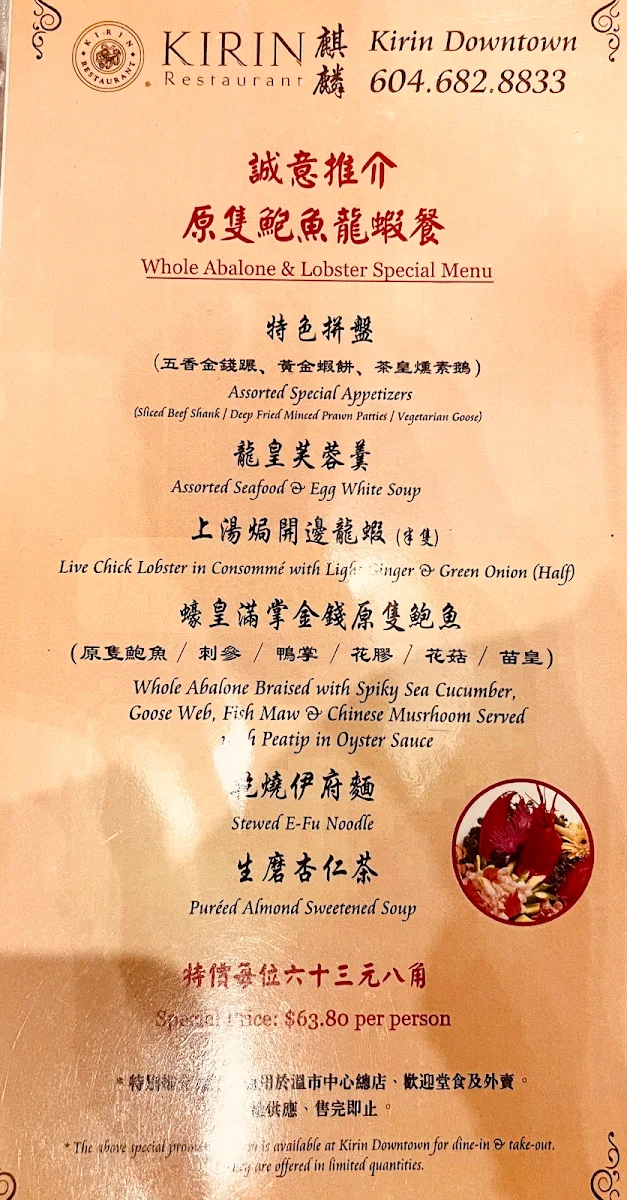 KIRIN RESTAURANT
KIRIN 麒麟
Restaurant
Kirin Downtown
604.682.8833
誠意推介
原隻鮑魚龍蝦餐
Whole Abalone & Lobster Special Menu
特色拼盤
(五香金錢𨍭、黃金蝦餅、茶皇燻素鵝)
Assorted Special Appetizers
(Sliced Beef Shank / Deep Fried Minced Prawn Patties / Vegetarian Goose)
龍皇芙蓉羹
Assorted Seafood & Egg White Soup
上湯焗開邊龍蝦 (半隻)
Live Chick Lobster in Consommé with Light Ginger & Green Onion (Half)
蠔皇滿掌金錢原隻鮑魚
(原隻鮑魚 / 刺參 / 鴨掌 / 花膠 / 花菇 / 苗皇)
Whole Abalone Braised with Spiky Sea Cucumber,
Goose Web, Fish Maw & Chinese Musrhoom Served
Peatip in Oyster Sauce
燒伊府麵
Stewed E-Fu Noodle
生磨杏仁茶
Puréed Almond Sweetened Soup
特價每位六十三元八角
Special Price: $63.80 per person
* 特別 用於溫市中心總店、歡迎堂食及外賣。
供應、售完即止。
* The above special is available at Kirin Downtown for dine-in & take-out.
are offered in limited quantities.